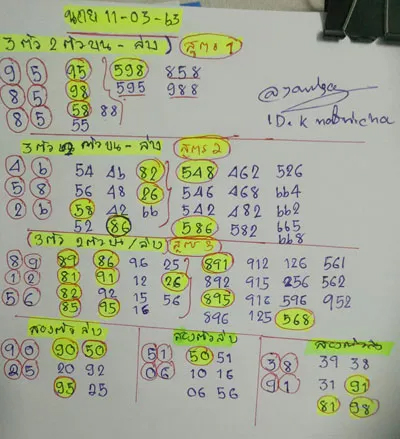 นอย 11-03-63
3 ตัว 2 ตัวบน - ล่าง สูตร 1
9 5 95 598 858
8 5 98 595 988
8 5 58 88
55
3 ตัว 2 ตัวบน - ล่าง สูตร 2
4 6 54 46 82 548 462 526
5 8 56 48 26 546 468 664
2 6 58 42 66 542 482 662
52 86 586 582 665
668
(3 ตัว 2 ตัวบน / ล่าง) สูตร 3
8 9 89 86 96 25 891 912 126 561
1 2 81 91 12 26 892 915 256 562
5 6 82 92 15 56 895 916 596 952
85 95 16 896 125 568
สองตัวล่าง
9 0 90 50
2 5 20 92
95 25
สองตัวล่าง
5 1 50 51
0 6 10 16
06 56
สองตัวล่าง
3 8 39 38
9 1 31 91
81 98